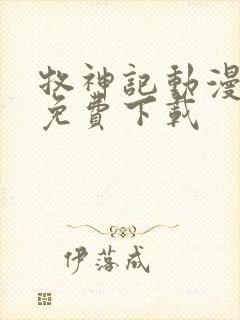 牧神記動漫
免費下載
伊落成